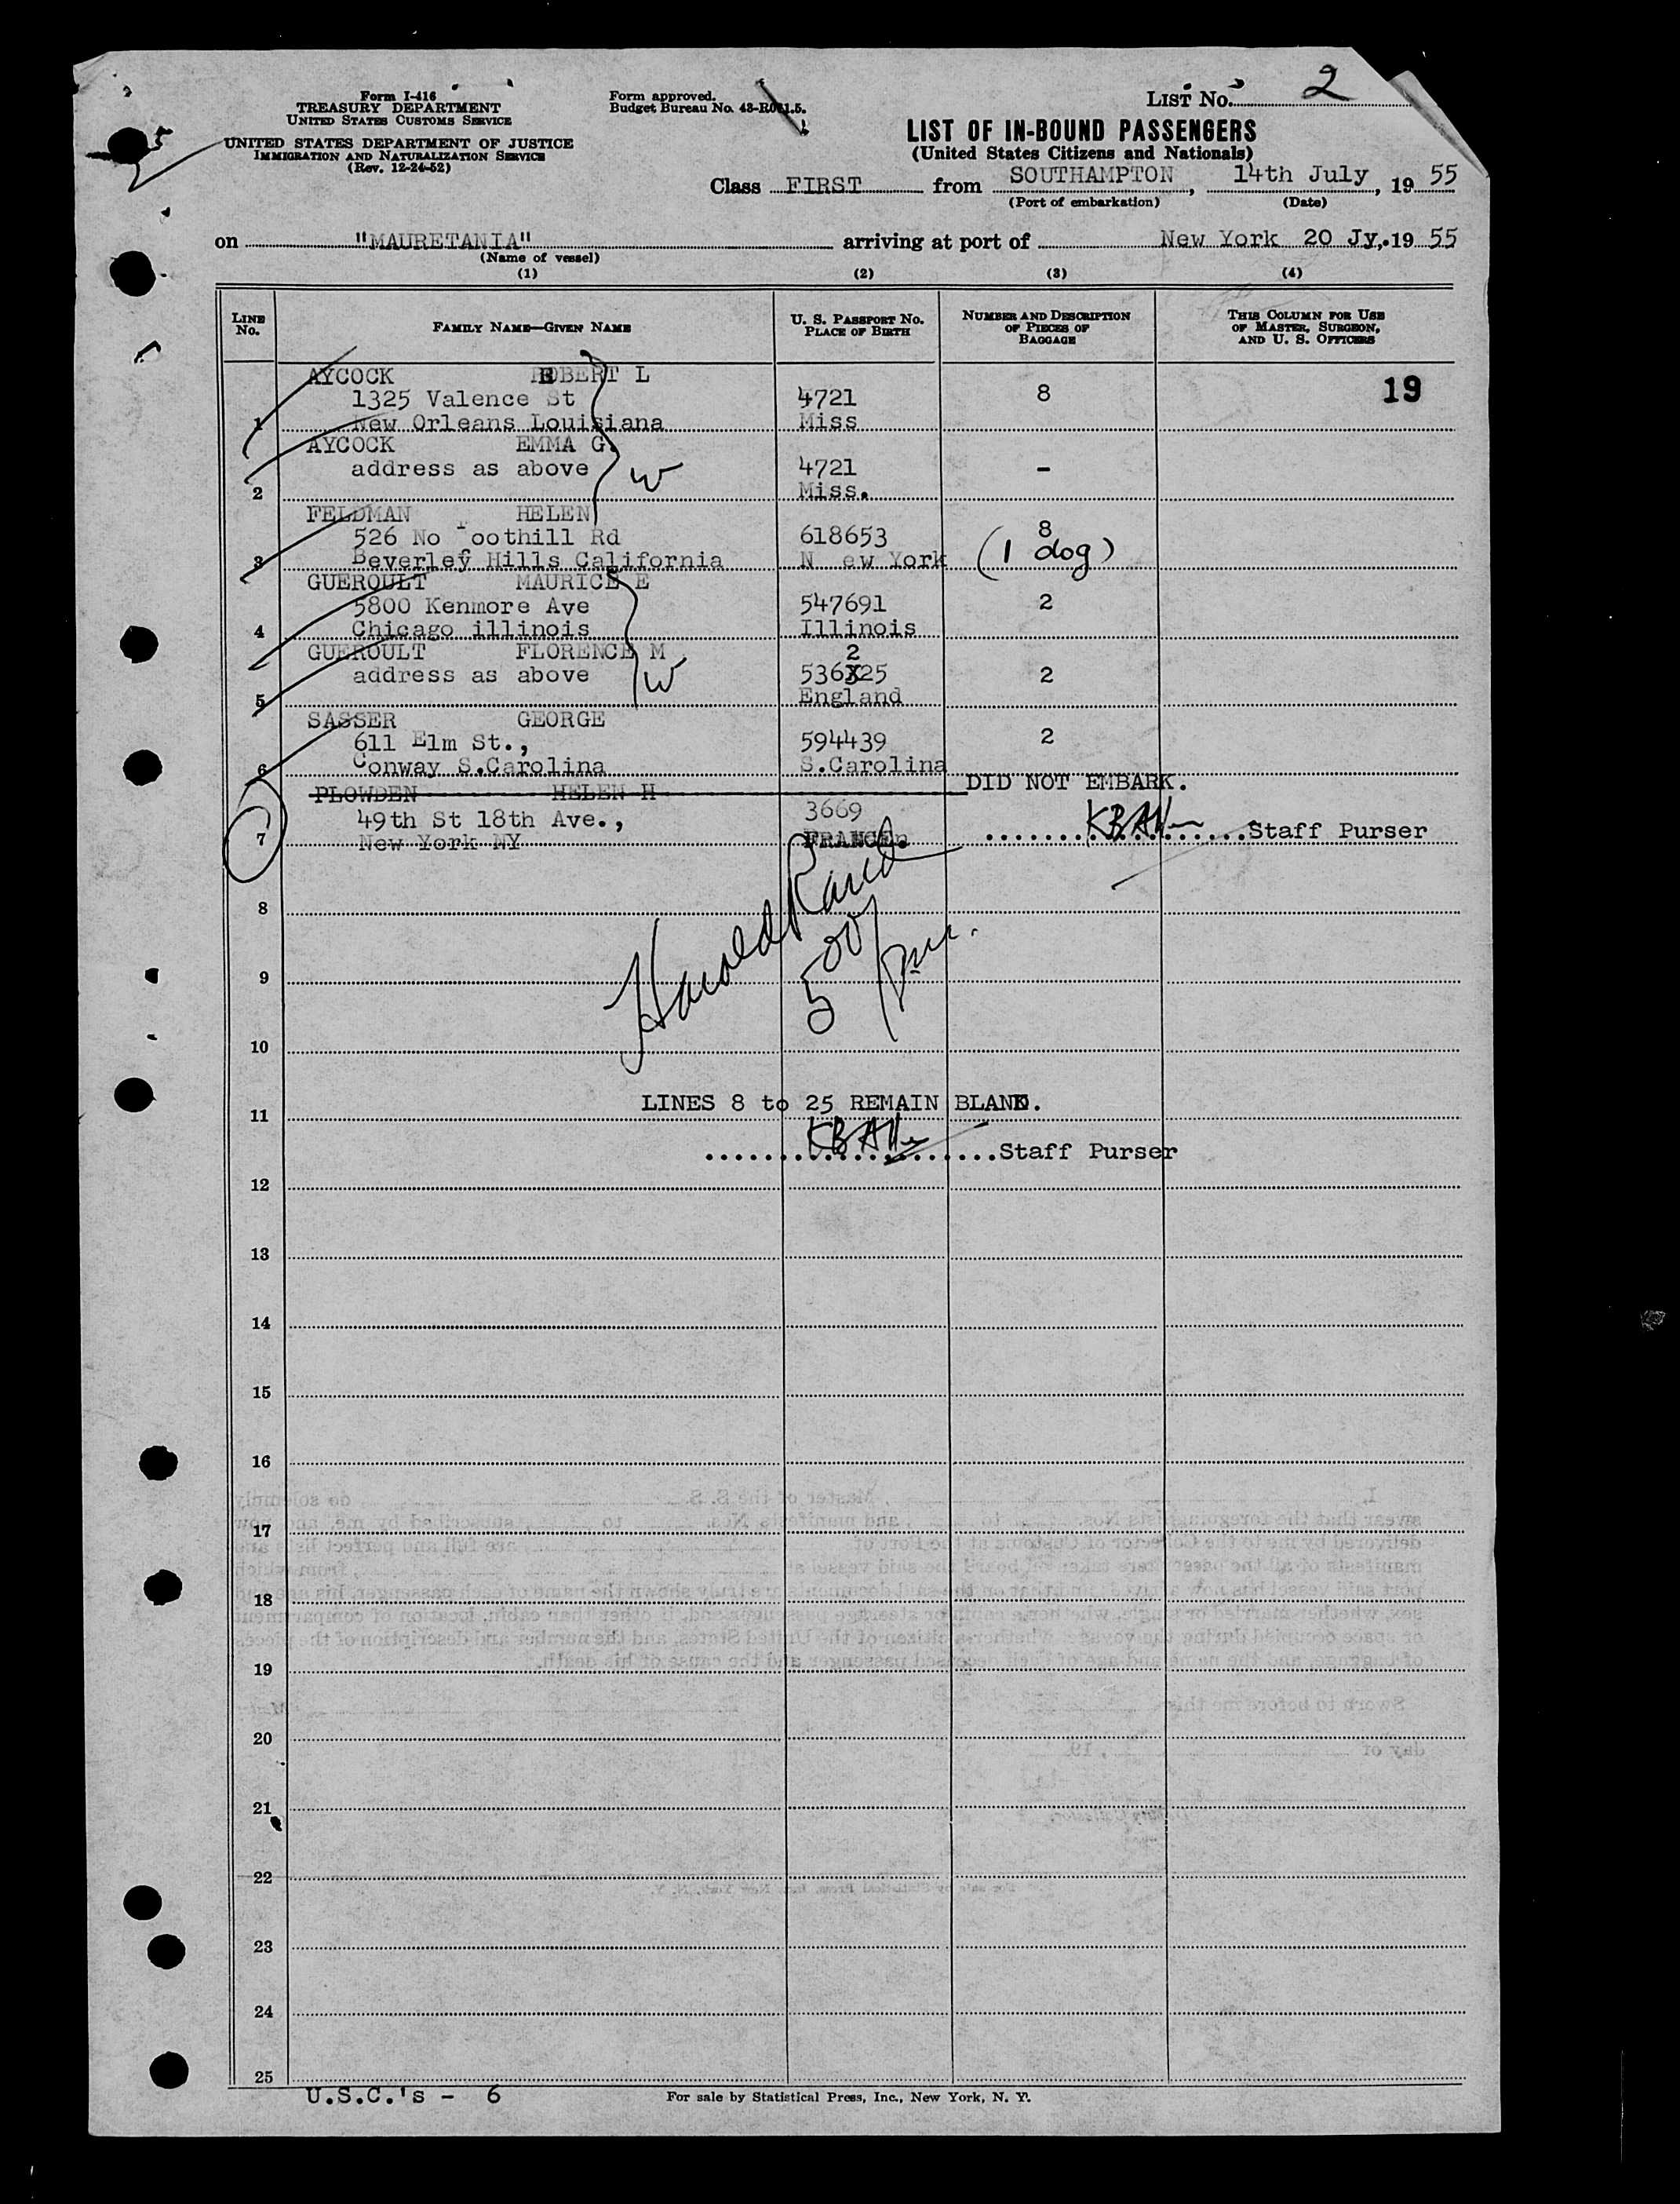 Form I-416
TREASURY DEPARTMENT
UNITED STATES CUSTOMS SERVICE
UNITED STATES DEPARTMENT OF JUSTICE
IMMIGRATION AND NATURALIZATION SERVICE
(Rev. 12-24-52)
Form approved.
Budget Bureau No. 43-R061.5.
LIST No. 2
LIST OF IN-BOUND PASSENGERS
(United States Citizens and Nationals)
Class FIRST from SOUTHAMPTON, 14th July, 19 55
(Port of embarkation) (Date)
on "MAURETANIA" arriving at port of New York 20 Jy, 19 55
(Name of vessel)
(1) (2) (3) (4)
LINE No. FAMILY NAME—GIVEN NAME U. S. PASSPORT No. PLACE OF BIRTH NUMBER AND DESCRIPTION OF PIECES OF BAGGAGE THIS COLUMN FOR USE OF MASTER, SURGEON, AND U. S. OFFICERS
AYCOCK ROBERT L 19
1325 Valence St 4721 8
1 New Orleans Louisiana Miss
AYCOCK EMMA G.
address as above W 4721 -
2 Miss.
FELDMAN HELEN
526 No Foothill Rd 618653 8
3 Beverley Hills California N ew York (1 dog)
GUEROULT MAURICE E
5800 Kenmore Ave 547691 2
4 Chicago illinois Illinois
GUEROULT FLORENCE M 2
address as above W 536X25 2
5 England
SASSER GEORGE
611 Elm St., 594439 2
6 Conway S.Carolina S.Carolina
PLOWDEN HELEN H DID NOT EMBARK.
49th St 18th Ave., 3669
7 New York NY FRANCE. Staff Purser
8
Harold Rand
500
9
10
LINES 8 to 25 REMAIN BLANK.
11
Staff Purser
12
13
14
15
16
17
18
19
20
21
22
23
24
25
U.S.C.'s - 6 For sale by Statistical Press, Inc., New York, N. Y.